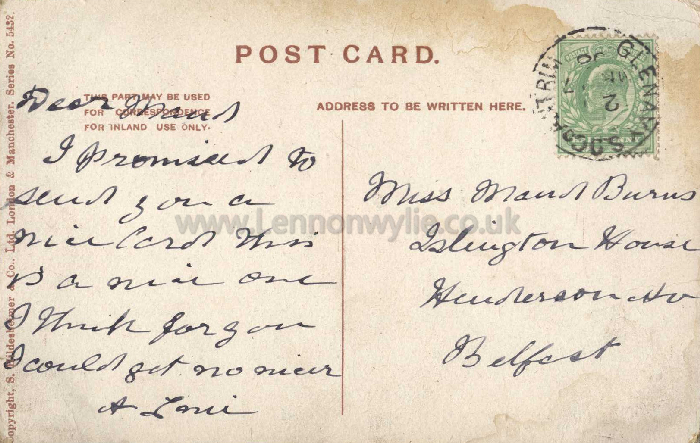 POST CARD.
THIS PART MAY BE USED
FOR CORRESPONDENCE
FOR INLAND USE ONLY.
ADDRESS TO BE WRITTEN HERE.
Dear Maud
I promised to
send you a
nice Card this
is a nice one
I think for you
I could get no nicer
A
Miss Maud Burns
Islington House
Henderson Av
Belfast
GLENAVY S.O. CO. ANTRIM
2
www.Lennonwylie.co.uk
Copyright, S. Hildesheimer & Co., Ltd. London & Manchester. Series No. 5432.